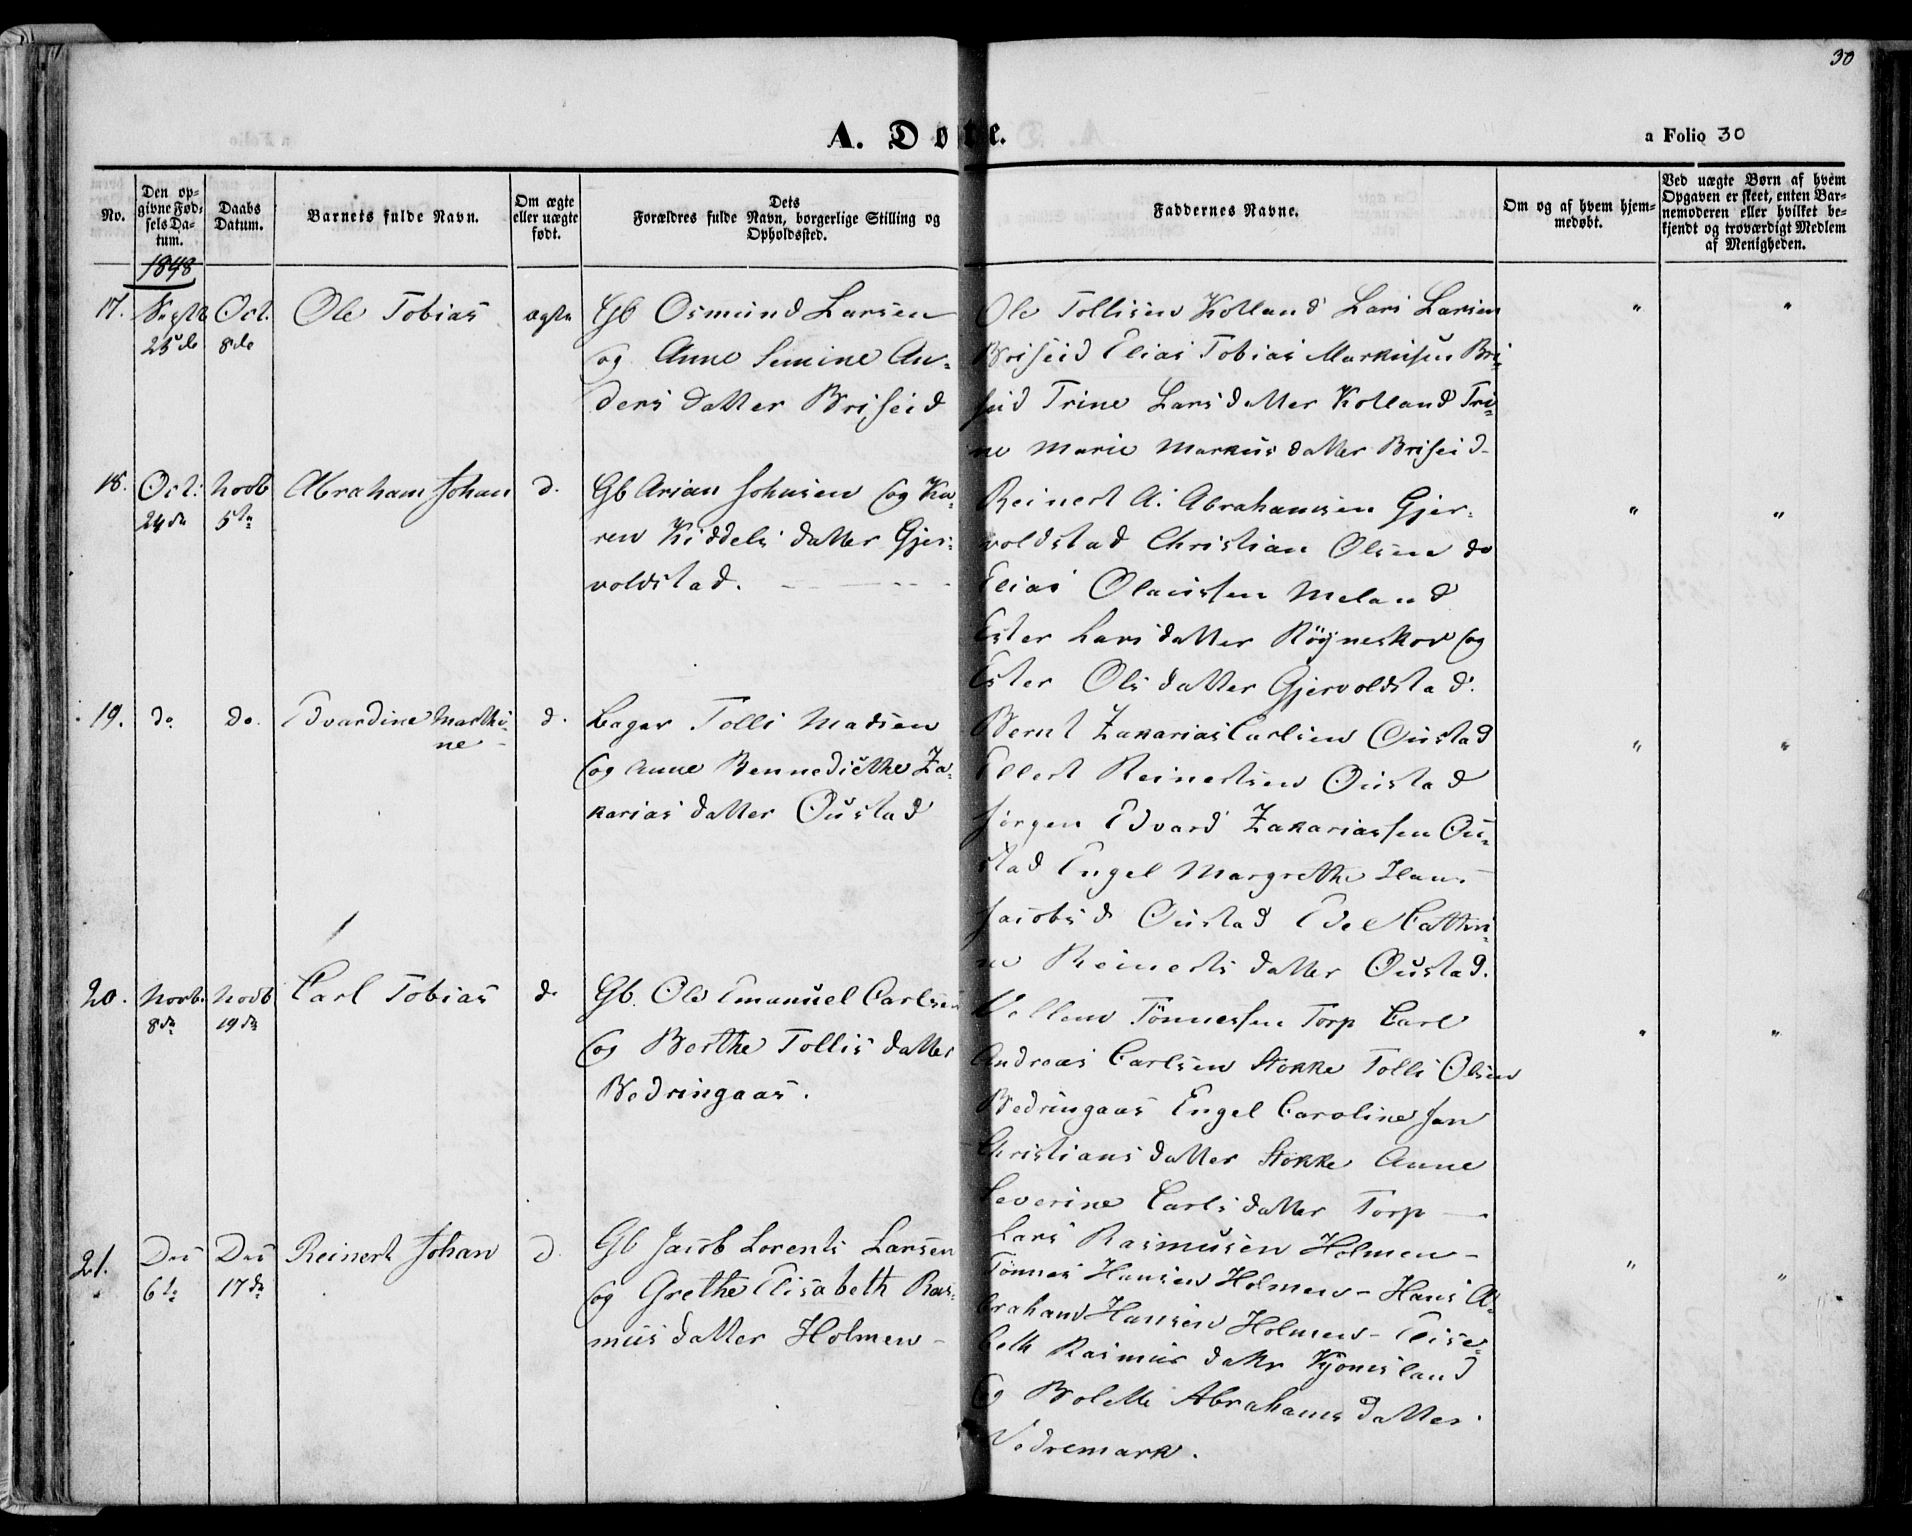 30
A. Døbte.
a Folio 30
No.
Den op-
givne Fød-
sels Da-
tum.
Daabs
Datum.
Barnets fulde Navn.
Om ægte
eller uægte
født.
Dets
Forældres fulde Navn, borgerlige Stilling og
Opholdssted.
Faddernes Navne.
Om og af hvem hjem-
medøbt.
Ved uægte Børn af hvem
Opgaven er skeet, enten Bar-
nemoderen eller hvilket be-
kjendt og troværdigt Medlem
af Menigheden.
1848
17.
Septb
25de
Oct.
8de
Ole Tobias
ægte
Gb Osmund Larsen
og Anne Semine An-
ders datter Briseid
Ole Tollisen Kolland Lars Larsen
Briseid Elias Tobias Markusen Bri-
seid Trine Larsdatter Kolland Tri-
ne Marie Markusdatter Briseid
" "
18.
Oct.
24de
Novb
5te
Abraham Johan
d.
Gb Arian Johnsen og Ka-
ren Kiddels datter Gjer-
voldstad.
Reinert A. Abrahamsen Gjer-
voldstad Christian Olsen do
Elias Olaussen Meland
Ester Larsdatter Røyneskor og
Ester Olsdatter Gjervoldstad.
" "
19.
do
do.
Edvardine Marthi-
ne
d.
Tolli Madsen
og Anne Bennedicthe Za-
karias datter Oustad
Bernt Zakarias Carlsen Oustad
Ellert Reinertsen Oustad
Jørgen Edvard Zakariassen Ou-
stad Engel Margrethe Hans
Jacobsd Oustad
ne Reinerts datter Oustad.
" "
20.
Novb.
8de
Novb
19de
Carl Tobias
d.
Gb. Ole Emanuel Carlsen
og Berthe Tollis datter
Bedringaas.
Vellem Tønnessen Torp Carl
Andreas Carlsen Stokke Tolli Olsen
Bedringaas Engel Caroline Jan
Christiansdatter Stokke Anne
Severine Carlsdatter Torp
" "
21.
Des
6te
Des
17de
Reinert Johan
d.
Gb Jacob Lorents Larsen
og Grethe Elisabeth Ras-
mus datter Holmen
Lars Rasmusen Holmen -
Tønnes Hansen Holmen - Hans A-
braham Hansen Holmen - Elisa-
beth Rasmus datter Kjønisland
og Bolette Abrahams datter
Vedremark.
" "